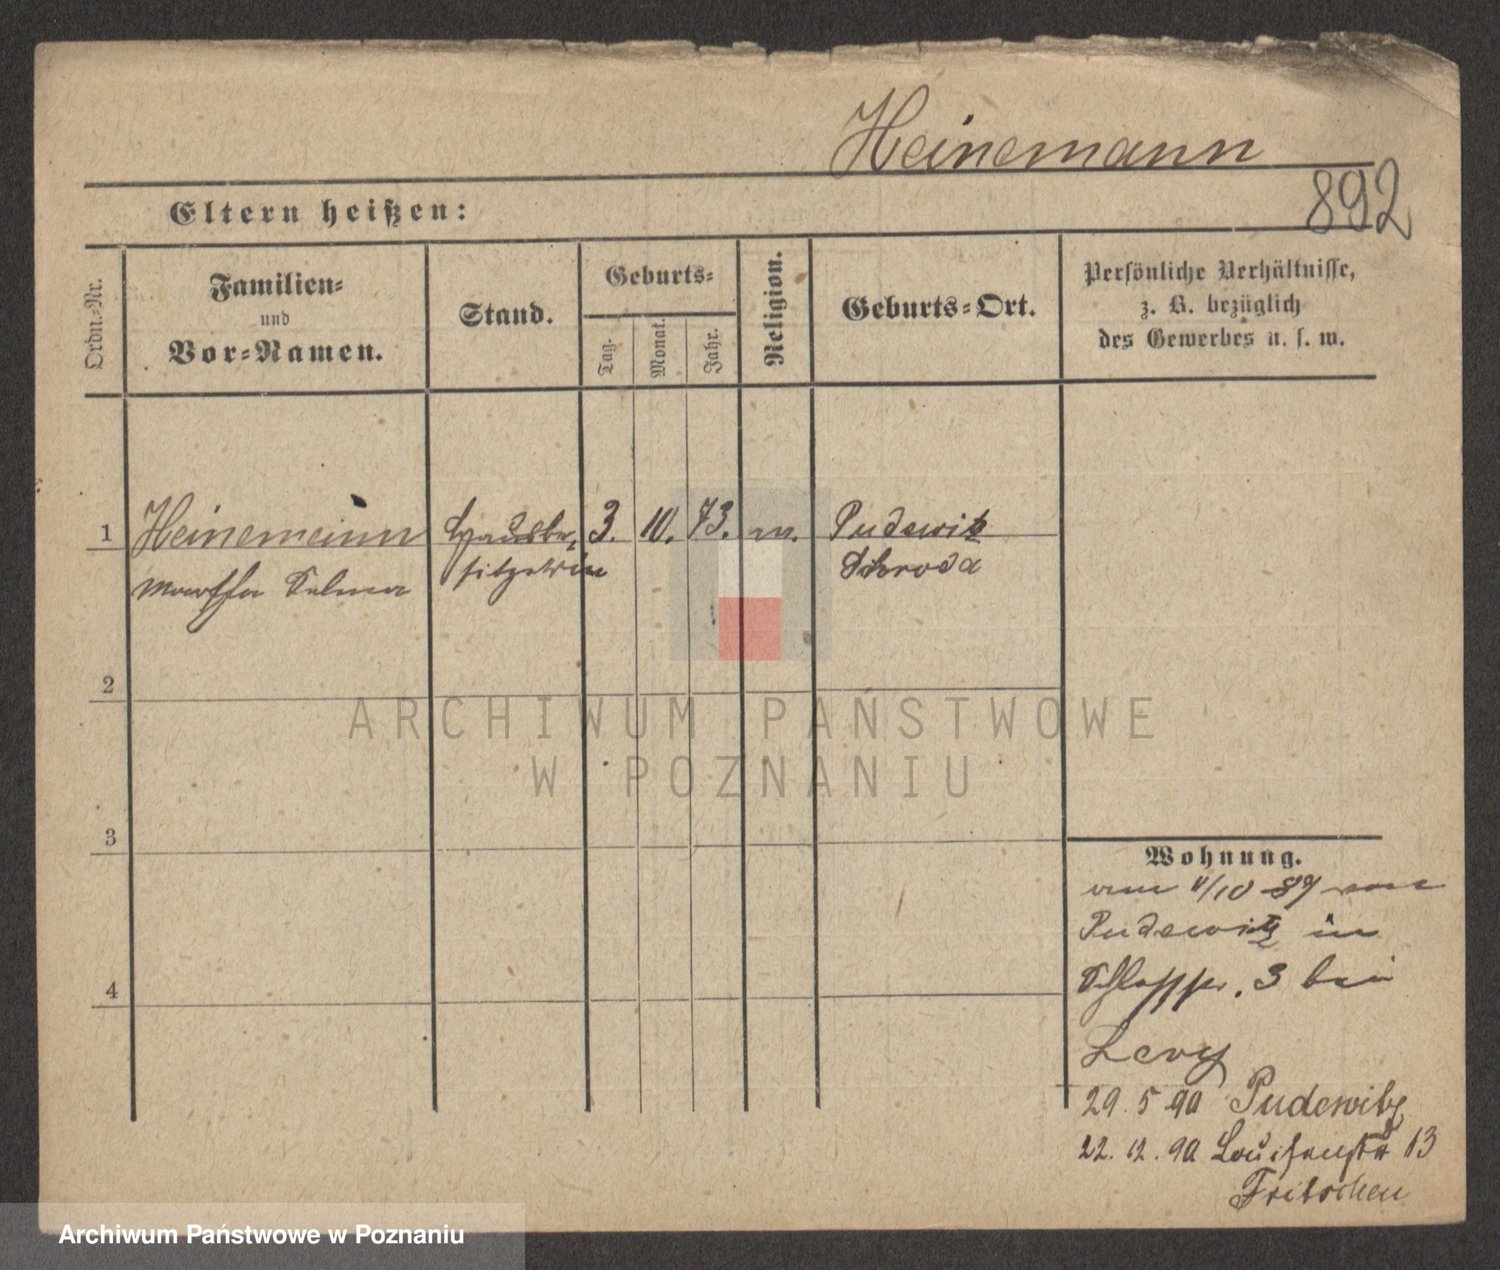 Heinemann
892
Eltern heißen:
Ordn.-Nr.
Familien-
und
Vor-Namen.
Stand.
Geburts-
Tag.
Monat.
Jahr.
Religion.
Geburts-Ort.
Persönliche Verhältnisse,
z. B. bezüglich
des Gewerbes u. s. w.
1 Heinemann Hausbe- 3. 10. 73. m. Pudewitz
Martha Selma sitzerin Schroda
2
ARCHIWUM PAŃSTWOWE
W POZNANIU
3
4
Wohnung.
/10 89 von
Pudewitz in
Schloßstr. 3 bei
Levy
29. 5 90 Pudewitz
22. 12. 90 Louisenstr 13
Archiwum Państwowe w Poznaniu